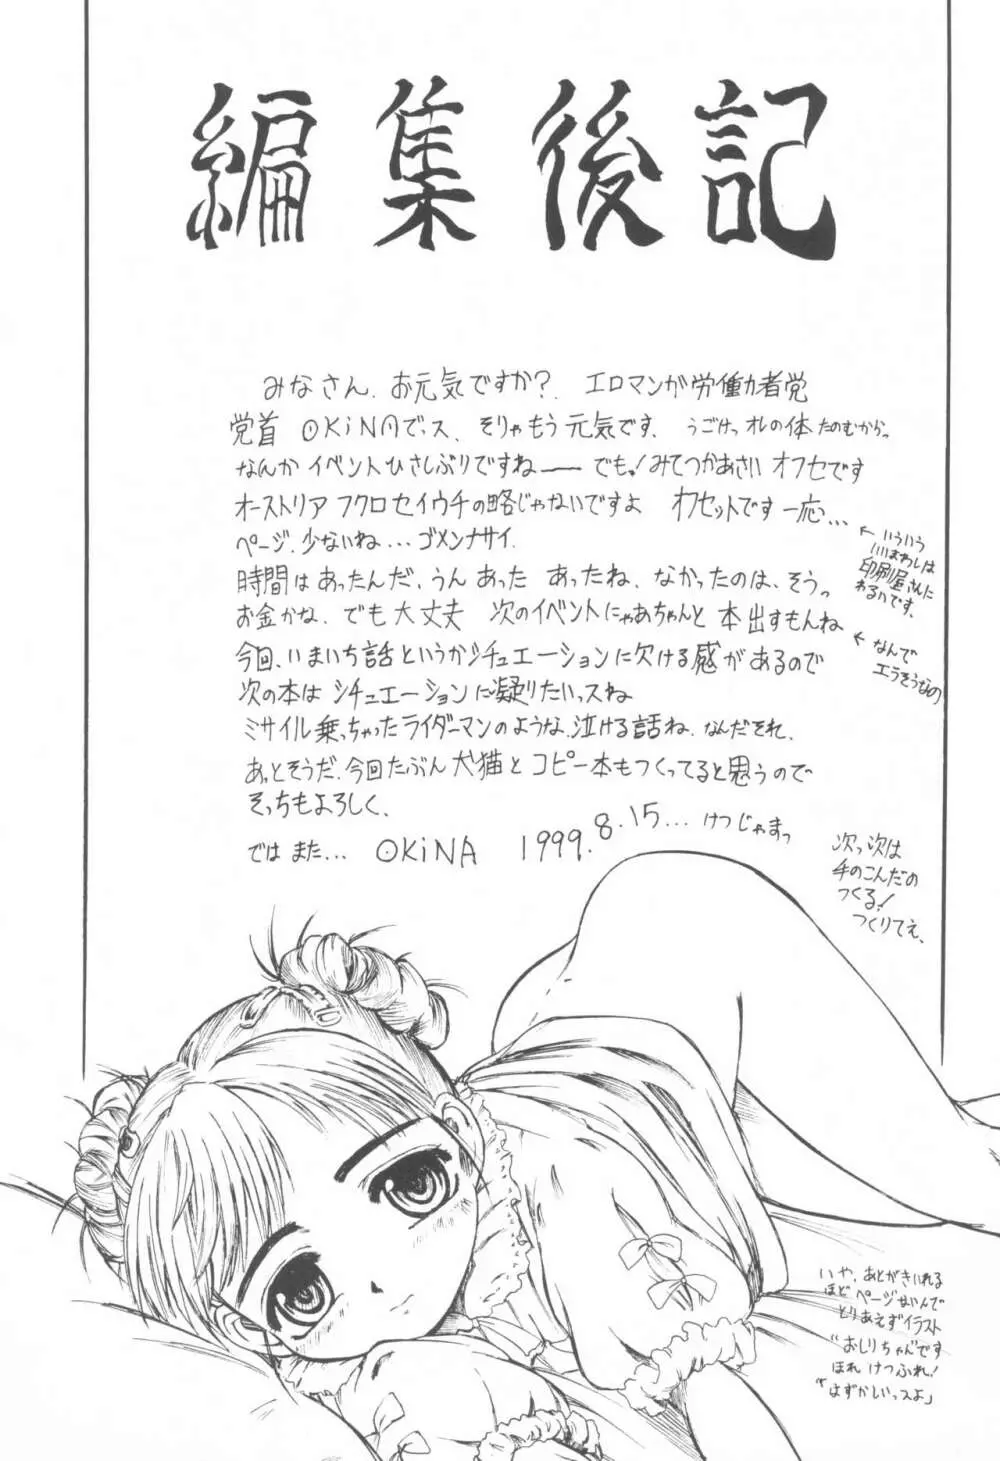 編集後記
みなさん、お元気ですか? エロマンガ労働者党
党首 OKiNAでっス、そりゃもう元気です、うごけっオレの体たのむからっ
なんかイベントひさしぶりですねーー でもっ!みてつかあさい オフセです
オーストリア フクロセイウチの略じゃないですよ オフセットです一応…
ページ、少ないね…ゴメンナサイ、
←いういう
いいまわしは
印刷屋さんに
わるいです、
時間はあったんだ、うんあった あったね、なかったのは、そうっ
お金かな、でも大丈夫 次のイベントにゃあちゃんと本出すもんね
←なんで
エラそうなの
今回、いまいち話というかシチュエーションに欠ける感があるので
次の本は シチュエーションに凝りたいっスね
ミサイル乗っちゃったライダーマンのような、泣ける話ね、なんだそれ、
あっとそうだ、今回たぶん犬猫とコピー本もつくってると思うので
そっちもよろしく、
では また… OKiNA 1999.8.15…けつじゃまっ
次っ次は
手のこんだの
つくる!
つくりてえ、
いや、あとがきいれる
ほどページないんで
とりあえずイラスト
"おしりちゃん"です
ほれ けつふれ!
「はずかしいっスよ」